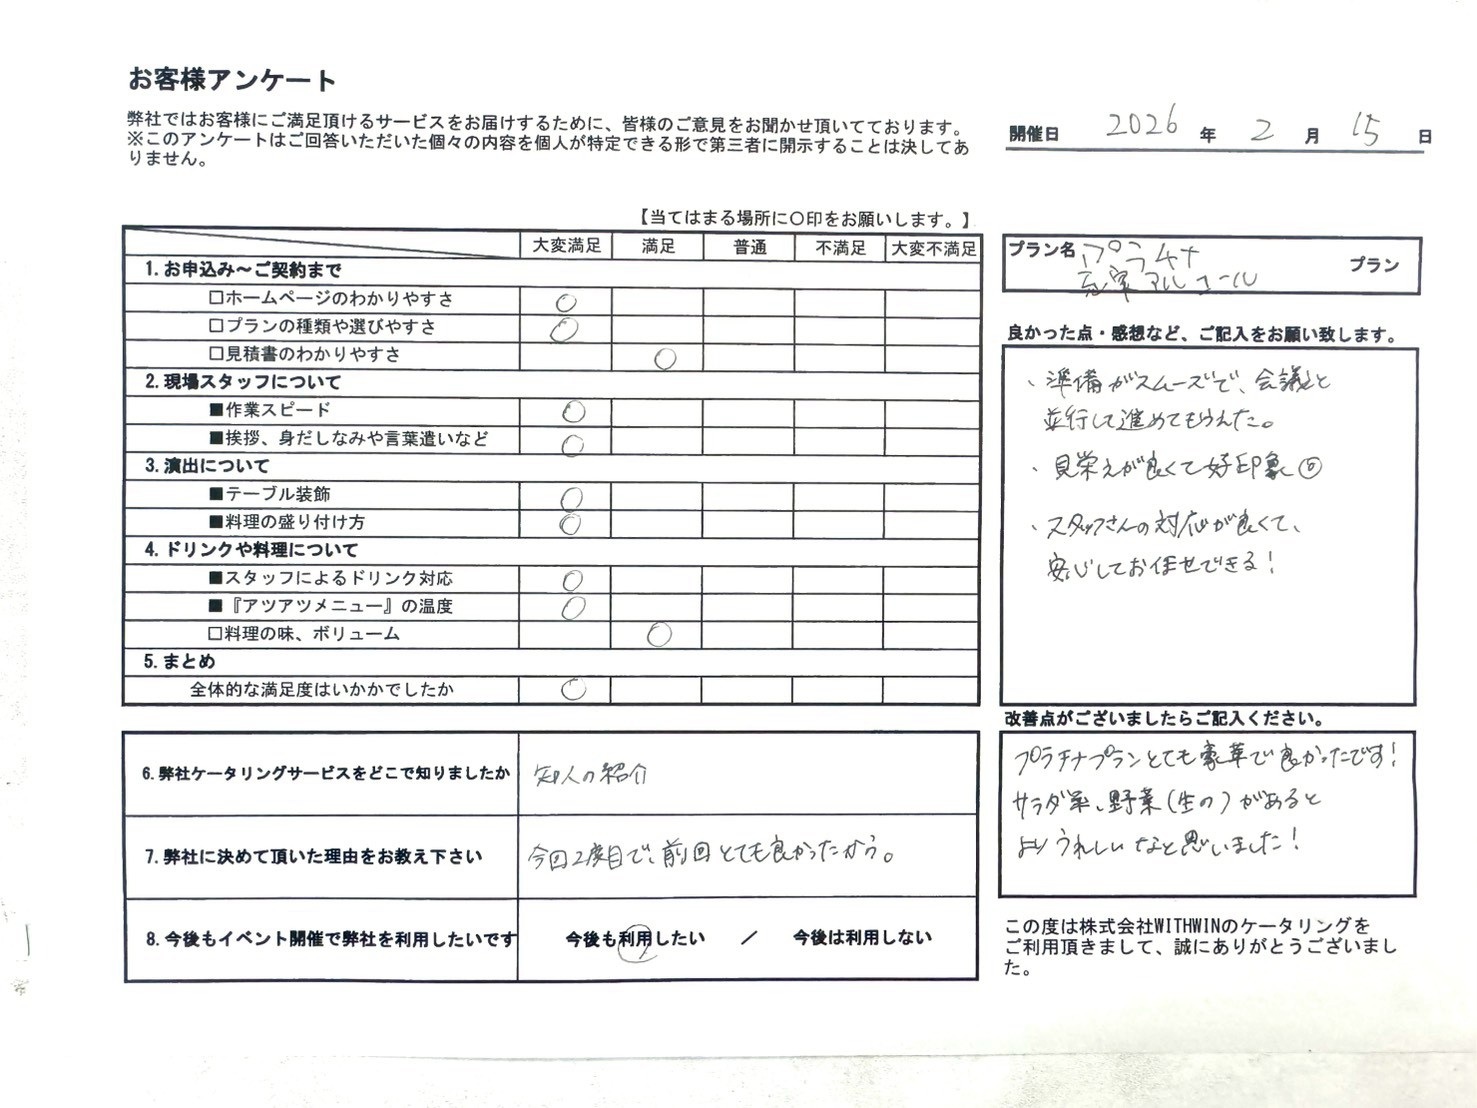 お客様アンケート
弊社ではお客様にご満足頂けるサービスをお届けするために、皆様のご意見をお聞かせ頂いてております。
※このアンケートはご回答いただいた個々の内容を個人が特定できる形で第三者に開示することは決してあ
りません。
開催日 2026 年 2 月 15 日
【当てはまる場所に〇印をお願いします。】
大変満足 満足 普通 不満足 大変不満足
1.お申込み～ご契約まで
□ホームページのわかりやすさ ○
□プランの種類や選びやすさ ○
□見積書のわかりやすさ ○
2.現場スタッフについて
■作業スピード ○
■挨拶、身だしなみや言葉遣いなど ○
3.演出について
■テーブル装飾 ○
■料理の盛り付け方 ○
4.ドリンクや料理について
■スタッフによるドリンク対応 ○
■『アツアツメニュー』の温度 ○
□料理の味、ボリューム ○
5.まとめ
全体的な満足度はいかかでしたか ○
6.弊社ケータリングサービスをどこで知りましたか 知人の紹介
7.弊社に決めて頂いた理由をお教え下さい 今回2度目で、前回とても良かったから。
8.今後もイベント開催で弊社を利用したいです 今後も利用したい ／ 今後は利用しない
プラン名 プラチナ プラン
充実アルコール
良かった点・感想など、ご記入をお願い致します。
、準備がスムーズで、会議と
並行して進めてもらえた。
、見栄えが良くて好印象◎
、スタッフさんの対応が良くて、
安心してお任せできる！
改善点がございましたらご記入ください。
プラチナプランとても豪華で良かったです！
サラダ系、野菜(生の)があると
よりうれしいなと思いました！
この度は株式会社WITHWINのケータリングを
ご利用頂きまして、誠にありがとうございまし
た。